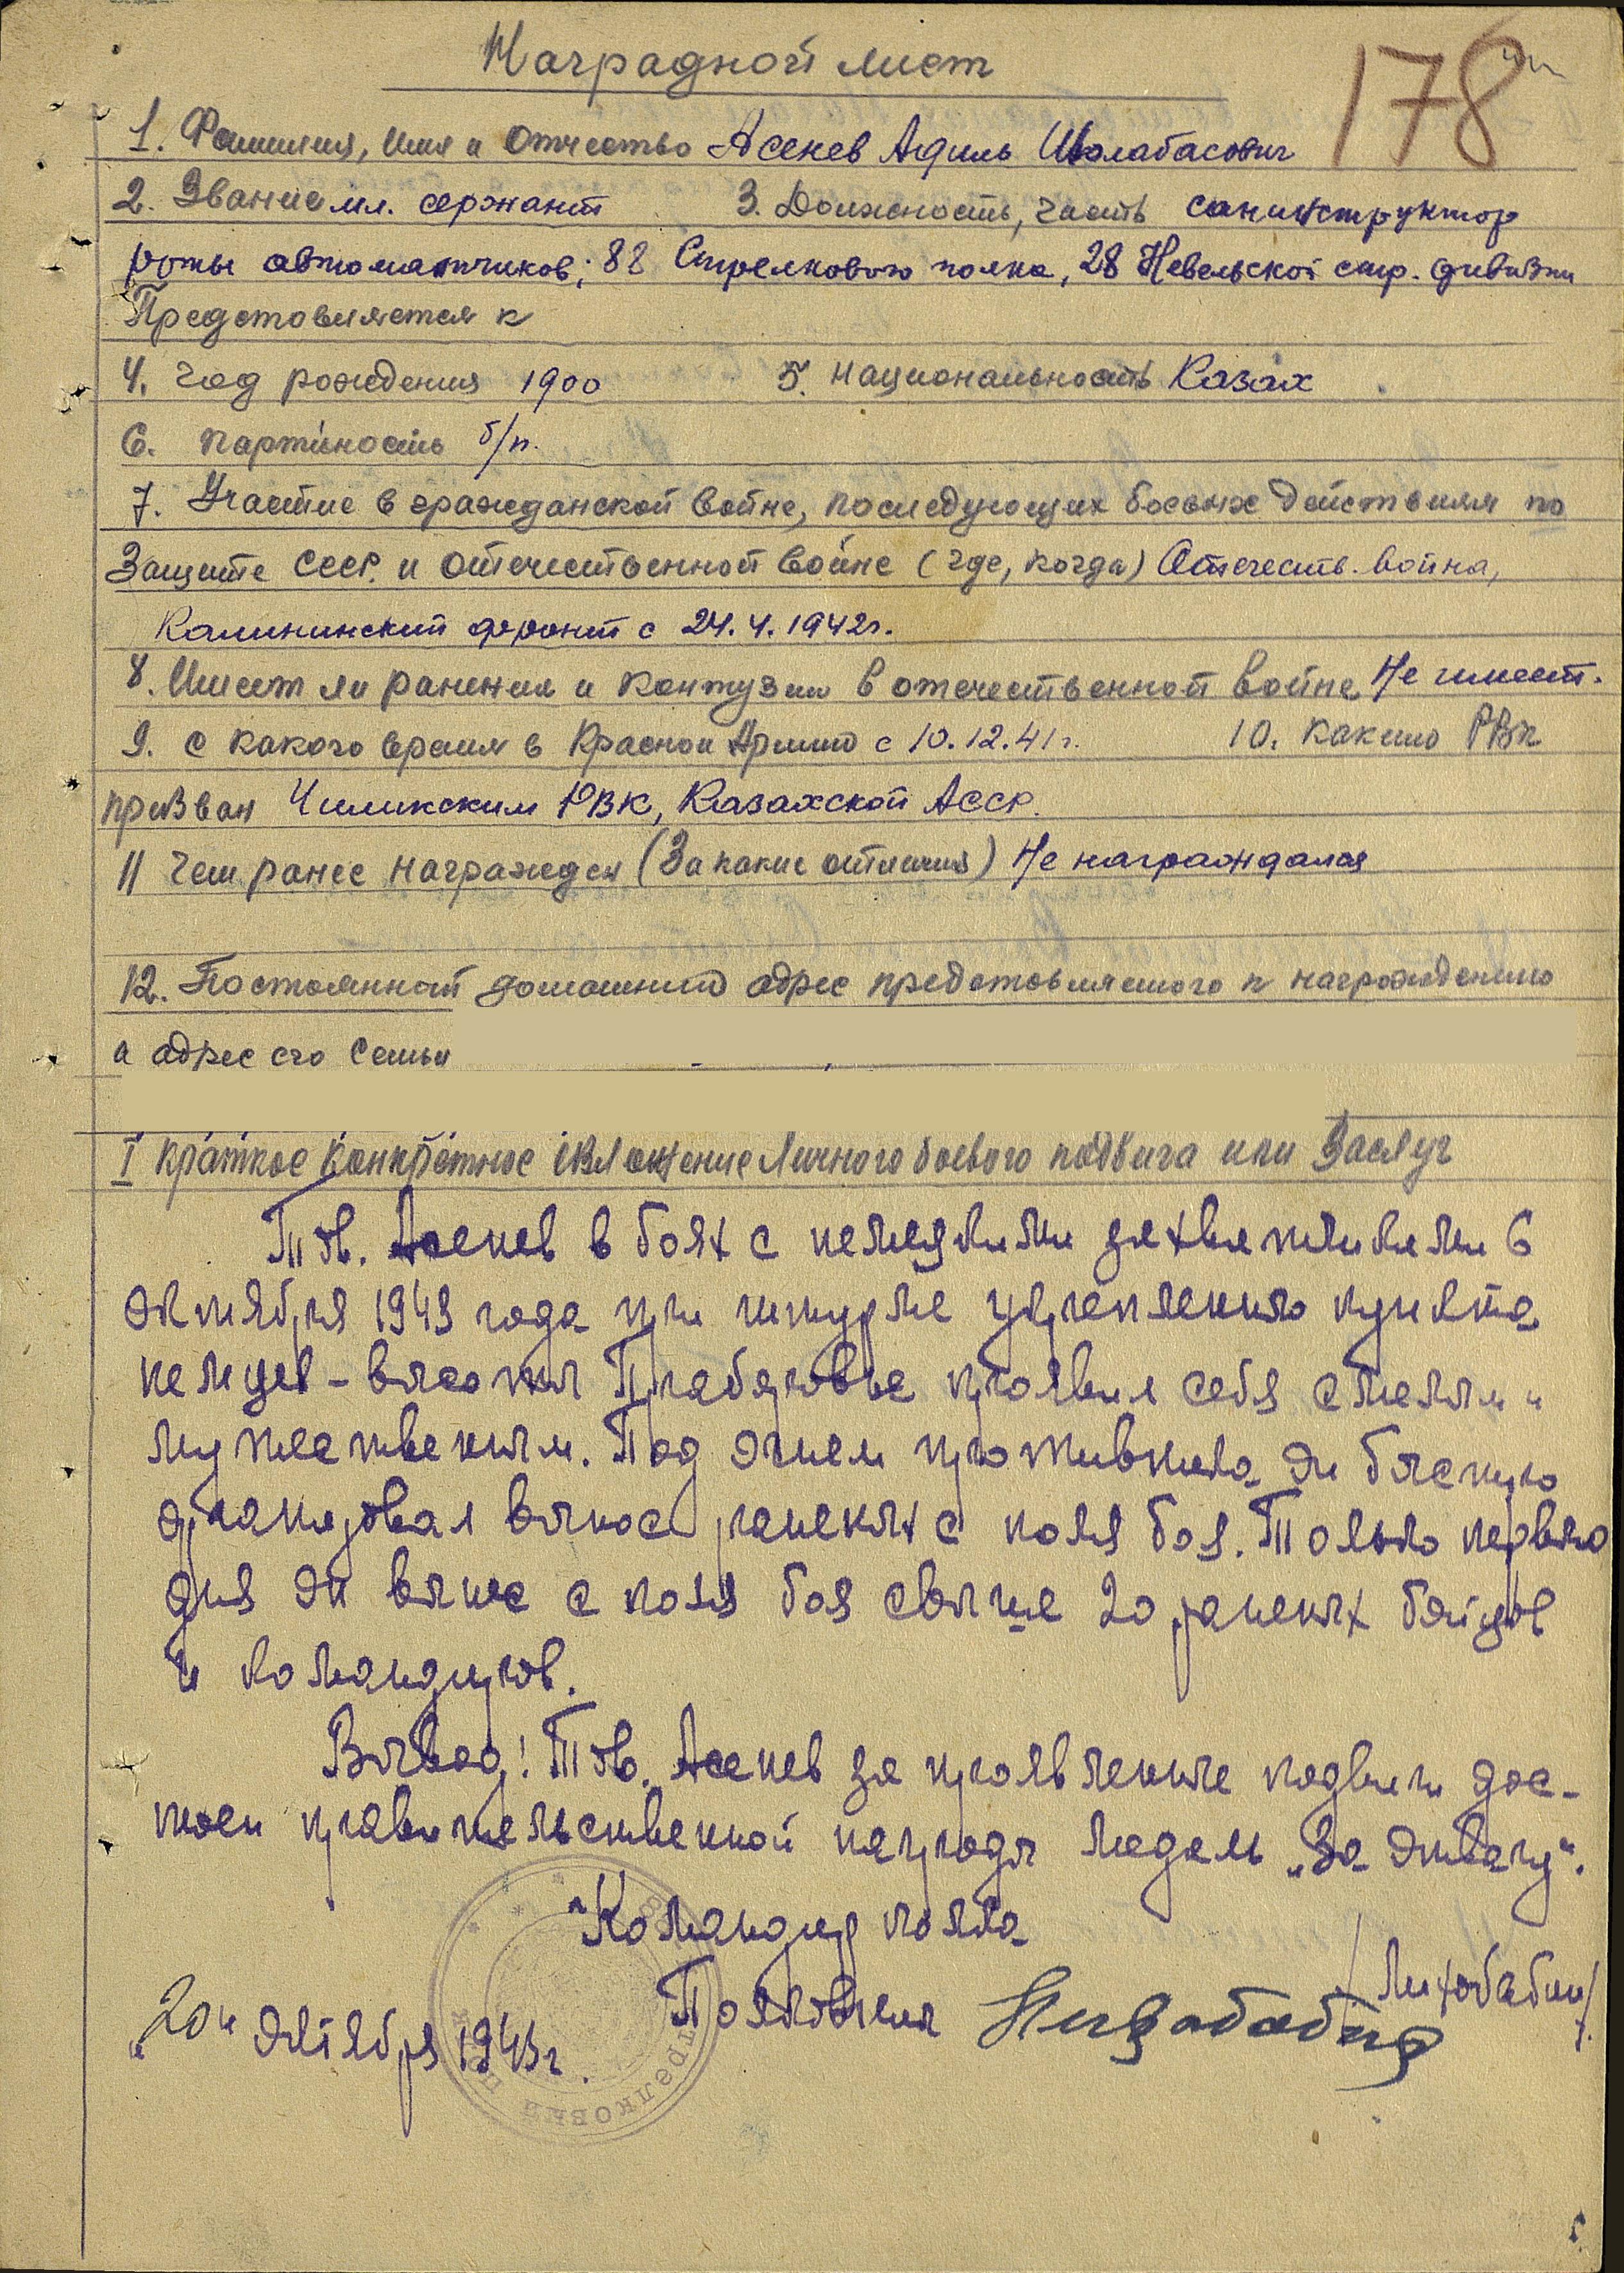 Наградной лист
178
1. Фамилия, имя и отчество Асенев Адиль Шолабасович
2. Звание мл. сержант 3. Должность, часть санинструктор
роты автоматчиков; 88 Стрелкового полка, 28 Невельской стр. дивизии
Представляется к
4. Год рождения 1900 5. Национальность Казах
6. Партийность б/п.
7. Участие в гражданской войне, последующих боевых действиях по
Защите СССР и отечественной войне (где, когда) Отечеств. война,
Калининский фронт с 24.4.1942г.
8. Имеет ли ранения и контузии в отечественной войне Не имеет.
9. с какого время в Красной Армию с 10.12.41г. 10. Каким РВК
призван Чиликским РВК, Казахской АССР.
11 Чем ранее награжден (За какие отличия) Не награждался
12. Постоянный домашний адрес представляемого к награждению
и адрес его семьи
I Краткое конкретное изложение личного боевого подвига или Заслуг
Тов. Асенев в боях с немецкими захватчиками 6
октября 1943 года при штурме укрепленного пункта
немцев - высоты проявил себя смелым и
мужественным. Под огнем противника он
организовал вынос раненых с поля боя. Только
дня он вынес с поля боя свыше 20 раненых бойцов
и командиров.
Вывод! Тов. Асенев за проявленные подвиги дос-
тоен правительственной награды медаль „За Отвагу“.
Командир полка
Полковник /Лихобабин/
„20“ октября 1943г.
СТРЕЛКОВЫЙ